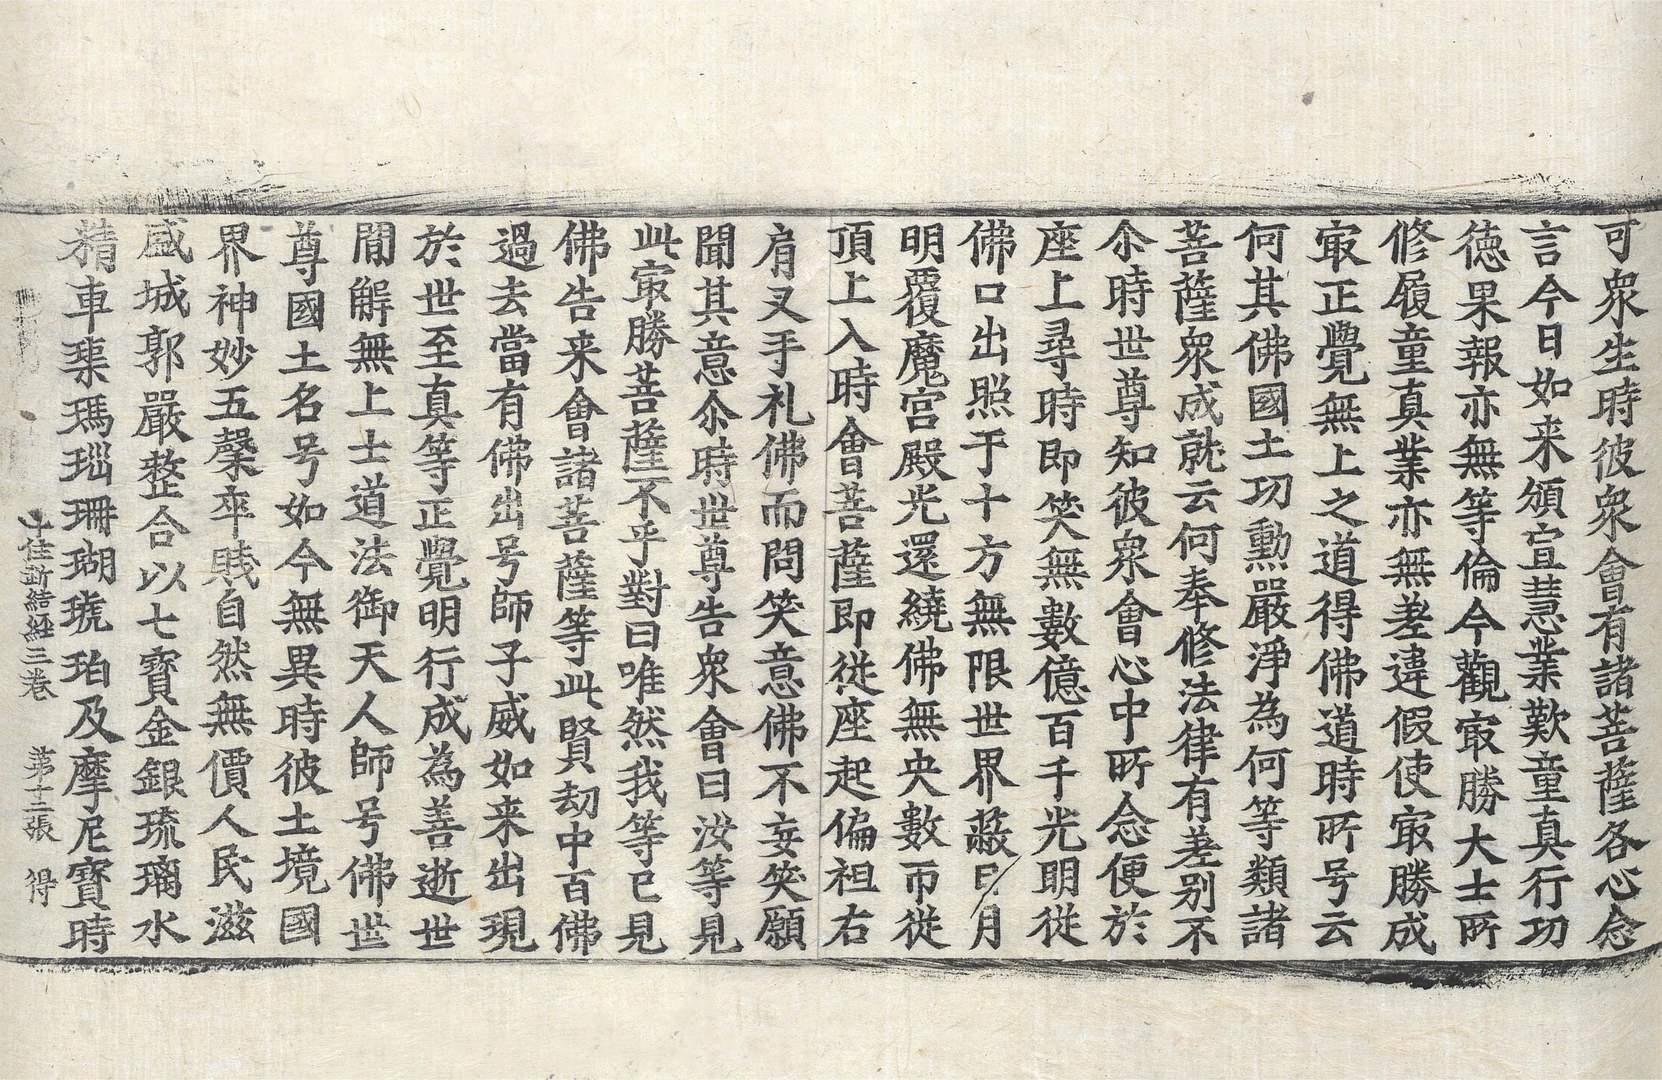 可衆生時彼衆會有諸菩薩各心念
言今日如来頒宣慧業歎童真行功
徳果報亦無等倫今觀㝡勝大士所
修履童真業亦無差違假使㝡勝成
㝡正覺無上之道得佛道時所号云
何其佛國土功勳嚴淨為何等類諸
菩薩衆成就云何奉修法律有差别不
尒時世尊知彼衆會心中所念便於
座上尋時即笑無數億百千光明従
佛口出照于十方無限世界蔽日月
明覆魔宮殿光還繞佛無央數帀従
頂上入時會菩薩即従座起偏袒右
肩叉手礼佛而問笑意佛不妄笑願
聞其意尒時世尊告衆會曰汝等見
此㝡勝菩薩不乎對曰唯然我等已見
佛告来會諸菩薩等此賢劫中百佛
過去當有佛出号師子威如来出現
於世至真等正覺明行成為善逝世
間解無上士道法御天人師号佛世
尊國土名号如今無異時彼土境國
界神妙五穀卒賎自然無價人民滋
盛城郭嚴整合以七寶金銀琉璃水
精車𤦲瑪瑙珊瑚琥珀及摩尼寶時
十住斷結経三巻 第十二張 得